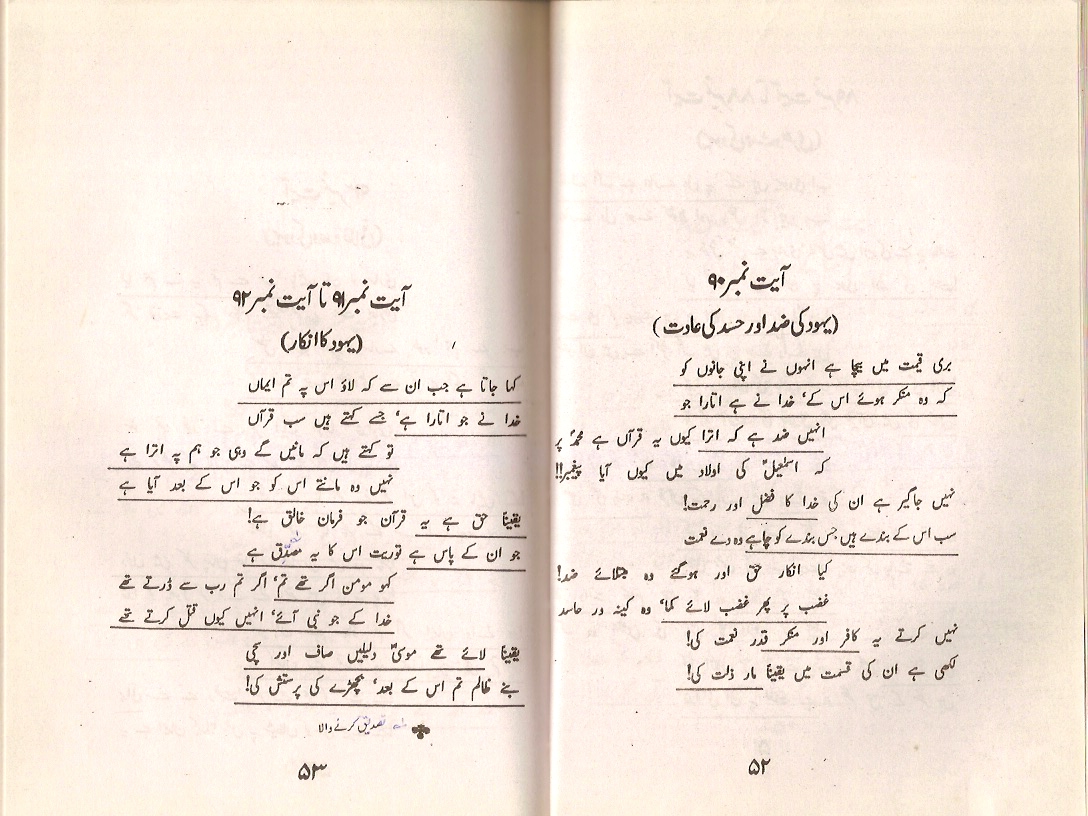 آیت نمبر ۹۰
(یہود کی ضد اور حسد کی عادت)
بری قیمت میں بیچا ہے انہوں نے اپنی جانوں کو
کہ وہ منکر ہوئے اس کے‘ خدا نے ہے اتارا جو
انہیں ضد ہے کہ اترا کیوں یہ قرآں ہے محمدؐ پر
کہ اسمٰعیلؑ کی اولاد میں کیوں آیا پیغمبر!!
نہیں جاگیر ہے ان کی خدا کا فضل اور رحمت!
سب اس کے بندے ہیں جس بندے کو چاہے وہ دے نعمت
کیا انکار حق اور ہوگئے وہ مبتلائے ضد!
غضب پر پھر غضب لائے کما‘ وہ کینہ ور حاسد
نہیں کرتے یہ کافر اور منکر قدر نعمت کی!
لکھی ہے ان کی قسمت میں یقیناً مار ذلت کی!
۵۲
آیت نمبر ۹۱ تا آیت نمبر ۹۲
(یہود کا انکار)
کہا جاتا ہے جب ان سے کہ لاؤ اس پہ تم ایماں
خدا نے جو اتارا ہے‘ جسے کہتے ہیں سب قرآں
تو کہتے ہیں کہ مانیں گے وہی جو ہم پہ اترا ہے
نہیں وہ مانتے اس کو جو اس کے بعد آیا ہے
یقیناً حق ہے یہ قرآن جو فرمان خالق ہے!
جو ان کے پاس ہے توریت اس کا یہ مصدّق ہے
کہو مومن اگر تھے تم‘ اگر تم رب سے ڈرتے تھے
خدا کے جو نبی آئے‘ انہیں کیوں قتل کرتے تھے
یقیناً لائے تھے موسیٰؑ دلیلیں صاف اور سچی
بنے ظالم تم اس کے بعد‘ بچھڑے کی پرستش کی!
تصدیق کرنے والا
۵۳